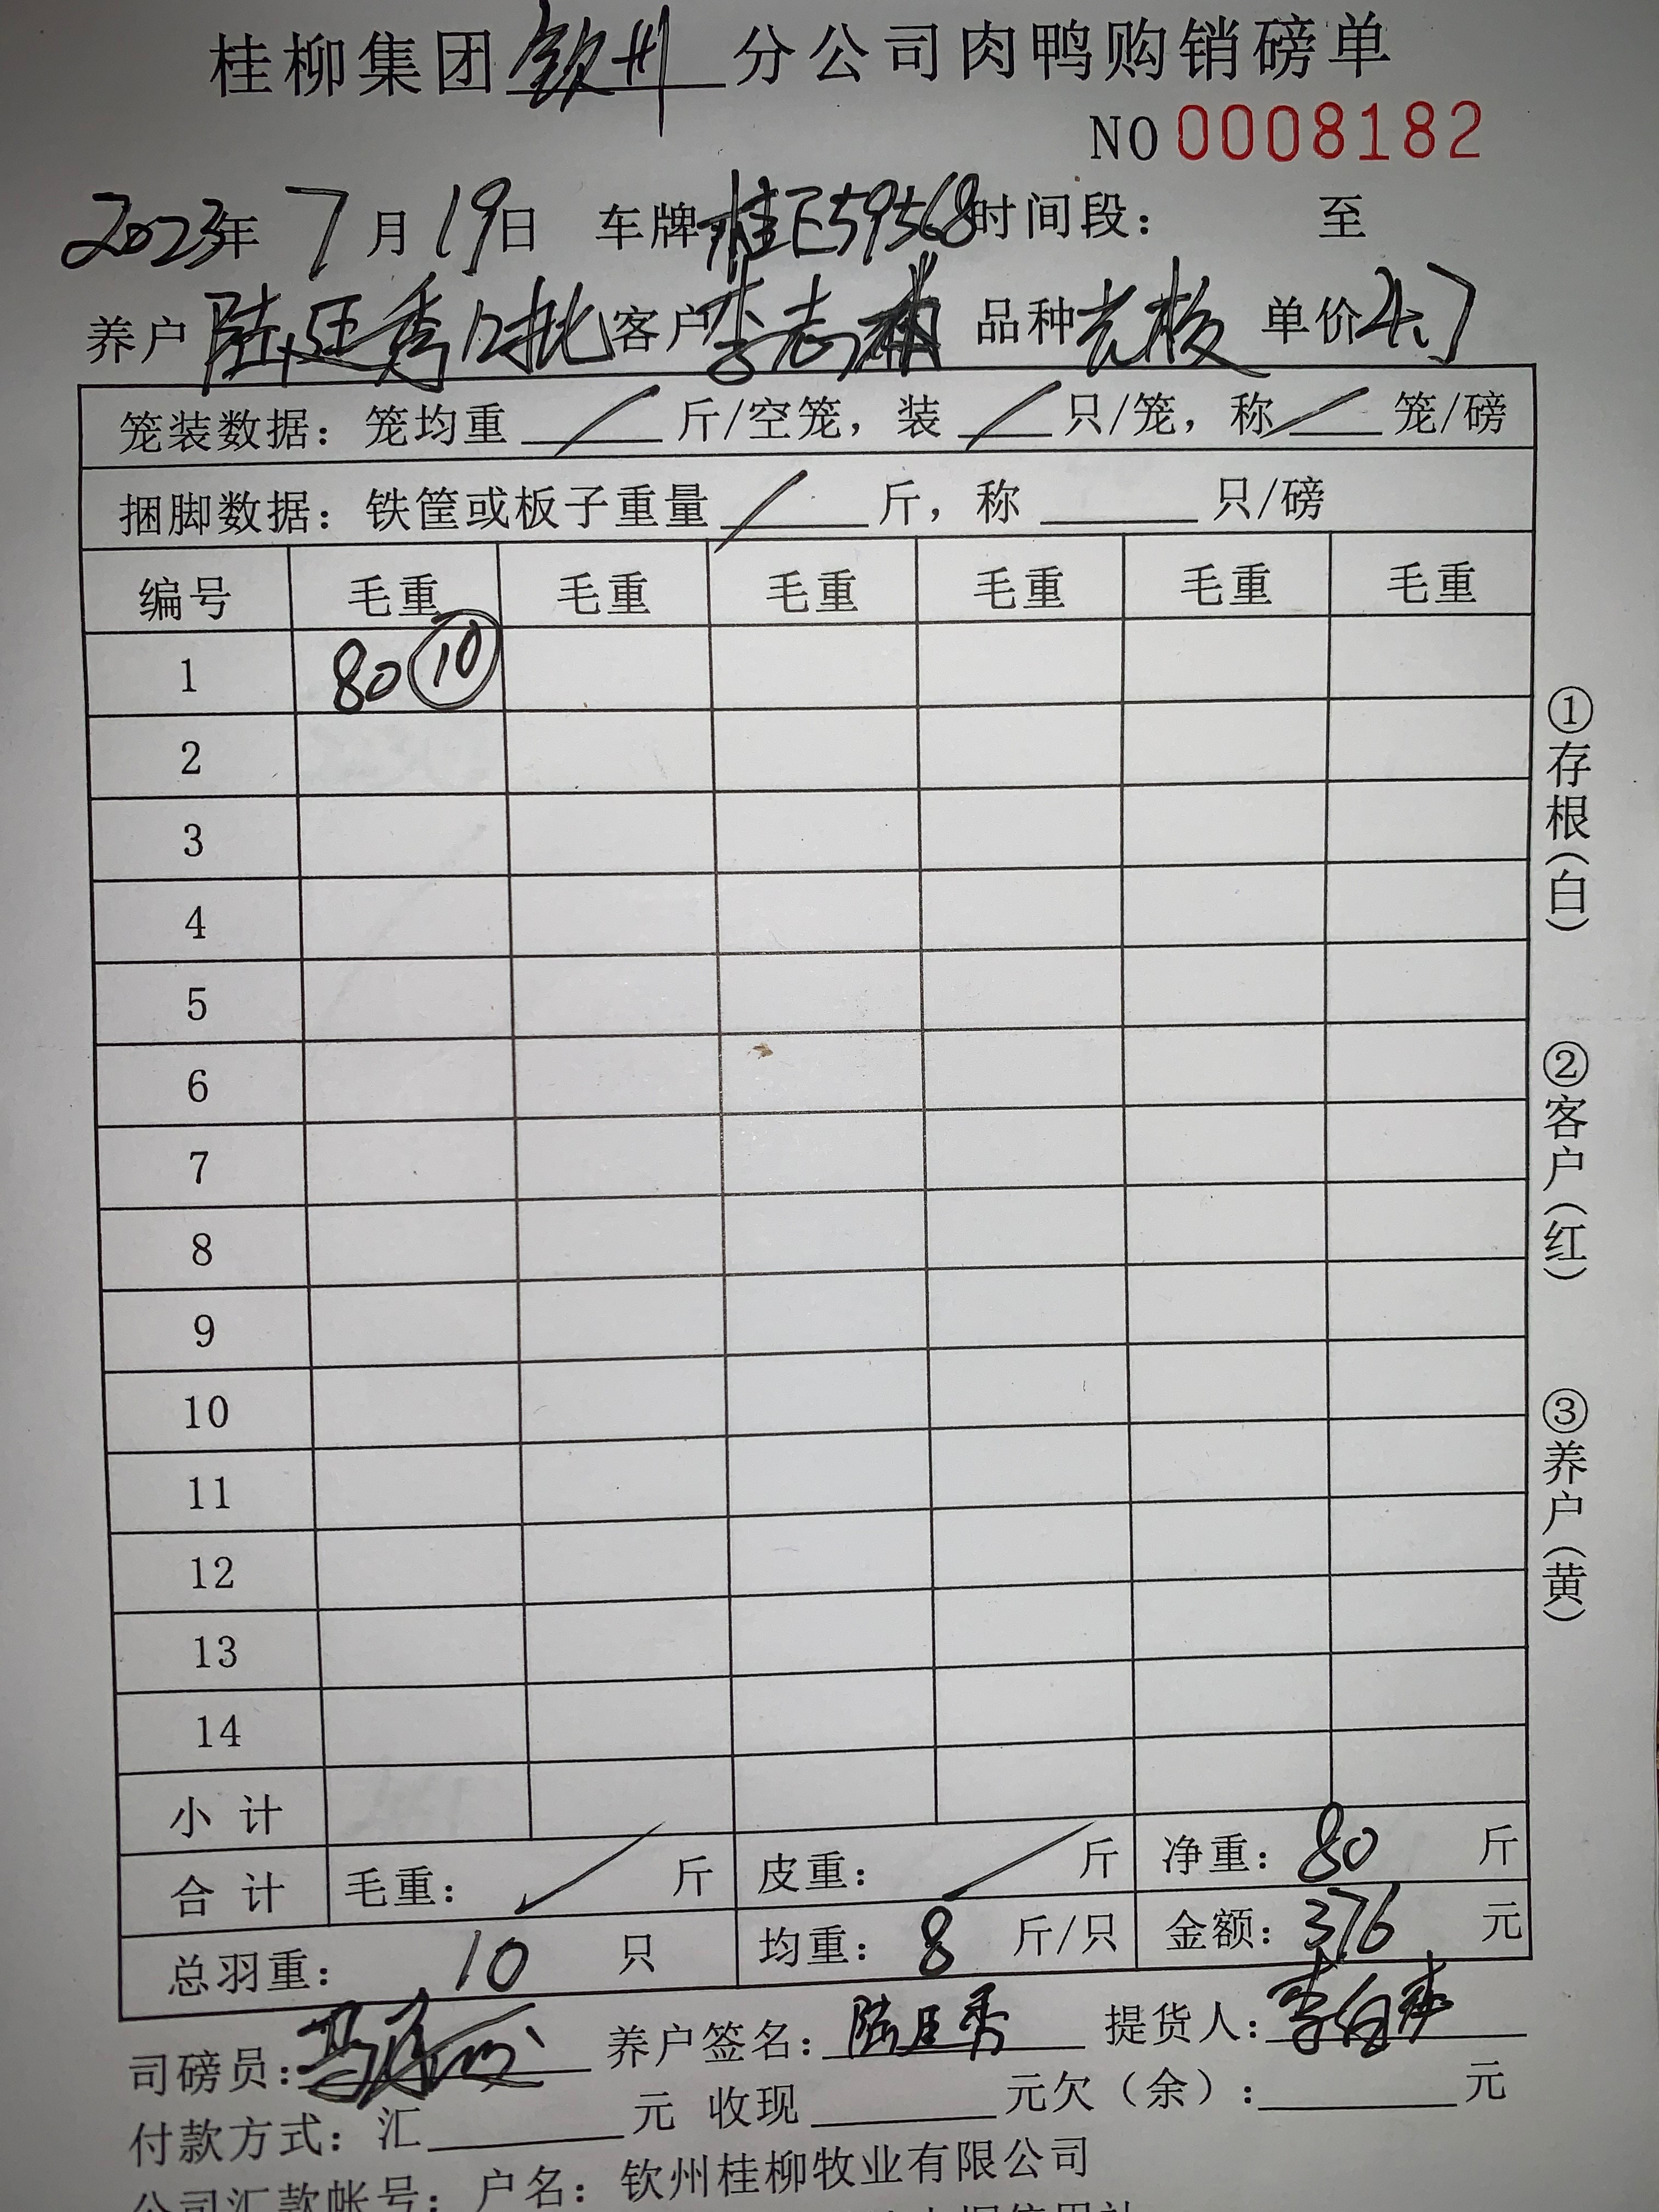 桂柳集团钦州分公司肉鸭购销磅单
NO 0008182
2023年 7月 19日 车牌桂E59568时间段： 至
养户 陆廷秀 批 客户李志 品种 单价4.7
笼装数据：笼均重 / 斤/空笼，装 / 只/笼，称 / 笼/磅
捆脚数据：铁筐或板子重量 / 斤，称 只/磅
编号 毛重 毛重 毛重 毛重 毛重 毛重
1 80 ⑩
2
3
4
5
6
7
8
9
10
11
12
13
14
小计
合计 毛重： / 斤 皮重： / 斤 净重：80 斤
总羽重： 10 只 均重：8 斤/只 金额：376 元
司磅员： 养户签名：陆廷秀 提货人：李
付款方式：汇 元 收现 元欠（余）： 元
公司汇款帐号：户名：钦州桂柳牧业有限公司
①存根（白）
②客户（红）
③养户（黄）